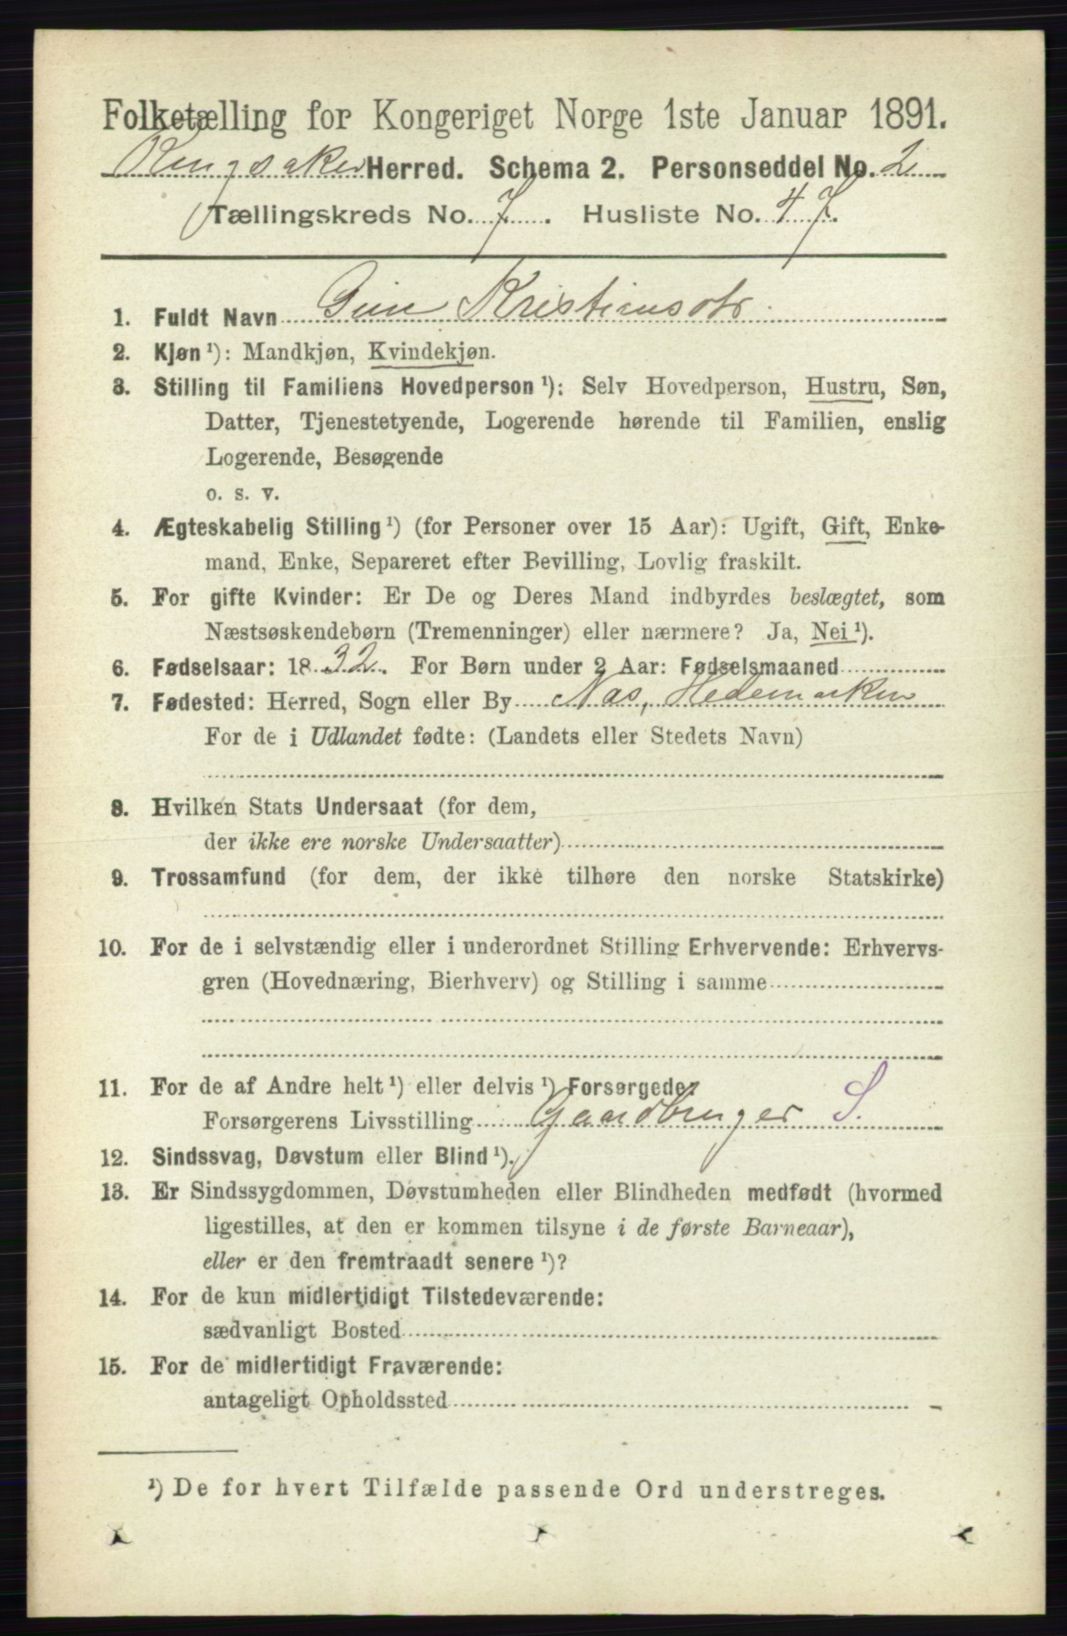 Folketælling for Kongeriget Norge 1ste Januar 1891.
Ringsaker Herred. Schema 2. Personseddel No. 2
Tællingskreds No. 7. Husliste No. 47.
1. Fuldt Navn Kristiansdtr.
2. Kjøn ¹): Mandkjøn, Kvindekjøn.
3. Stilling til Familiens Hovedperson ¹): Selv Hovedperson, Hustru, Søn,
Datter, Tjenestetyende, Logerende hørende til Familien, enslig
Logerende, Besøgende
o. s. v.
4. Ægteskabelig Stilling ¹) (for Personer over 15 Aar): Ugift, Gift, Enke-
mand, Enke, Separeret efter Bevilling, Lovlig fraskilt.
5. For gifte Kvinder: Er De og Deres Mand indbyrdes beslægtet, som
Næstsøskendebørn (Tremenninger) eller nærmere? Ja, Nei ¹).
6. Fødselsaar: 1832. For Børn under 2 Aar: Fødselsmaaned
7. Fødested: Herred, Sogn eller By Nas, Hedemarken
For de i Udlandet fødte: (Landets eller Stedets Navn)
8. Hvilken Stats Undersaat (for dem,
der ikke ere norske Undersaatter)
9. Trossamfund (for dem, der ikke tilhøre den norske Statskirke)
10. For de i selvstændig eller i underordnet Stilling Erhvervende: Erhvervs-
gren (Hovednæring, Bierhverv) og Stilling i samme
11. For de af Andre helt ¹) eller delvis ¹) Forsørgede:
Forsørgerens Livsstilling Gaardbruger S.
12. Sindssvag, Døvstum eller Blind ¹).
13. Er Sindssygdommen, Døvstumheden eller Blindheden medfødt (hvormed
ligestilles, at den er kommen tilsyne i de første Barneaar),
eller er den fremtraadt senere ¹)?
14. For de kun midlertidigt Tilstedeværende:
sædvanligt Bosted
15. For de midlertidigt Fraværende:
antageligt Opholdssted
¹) De for hvert Tilfælde passende Ord understreges.